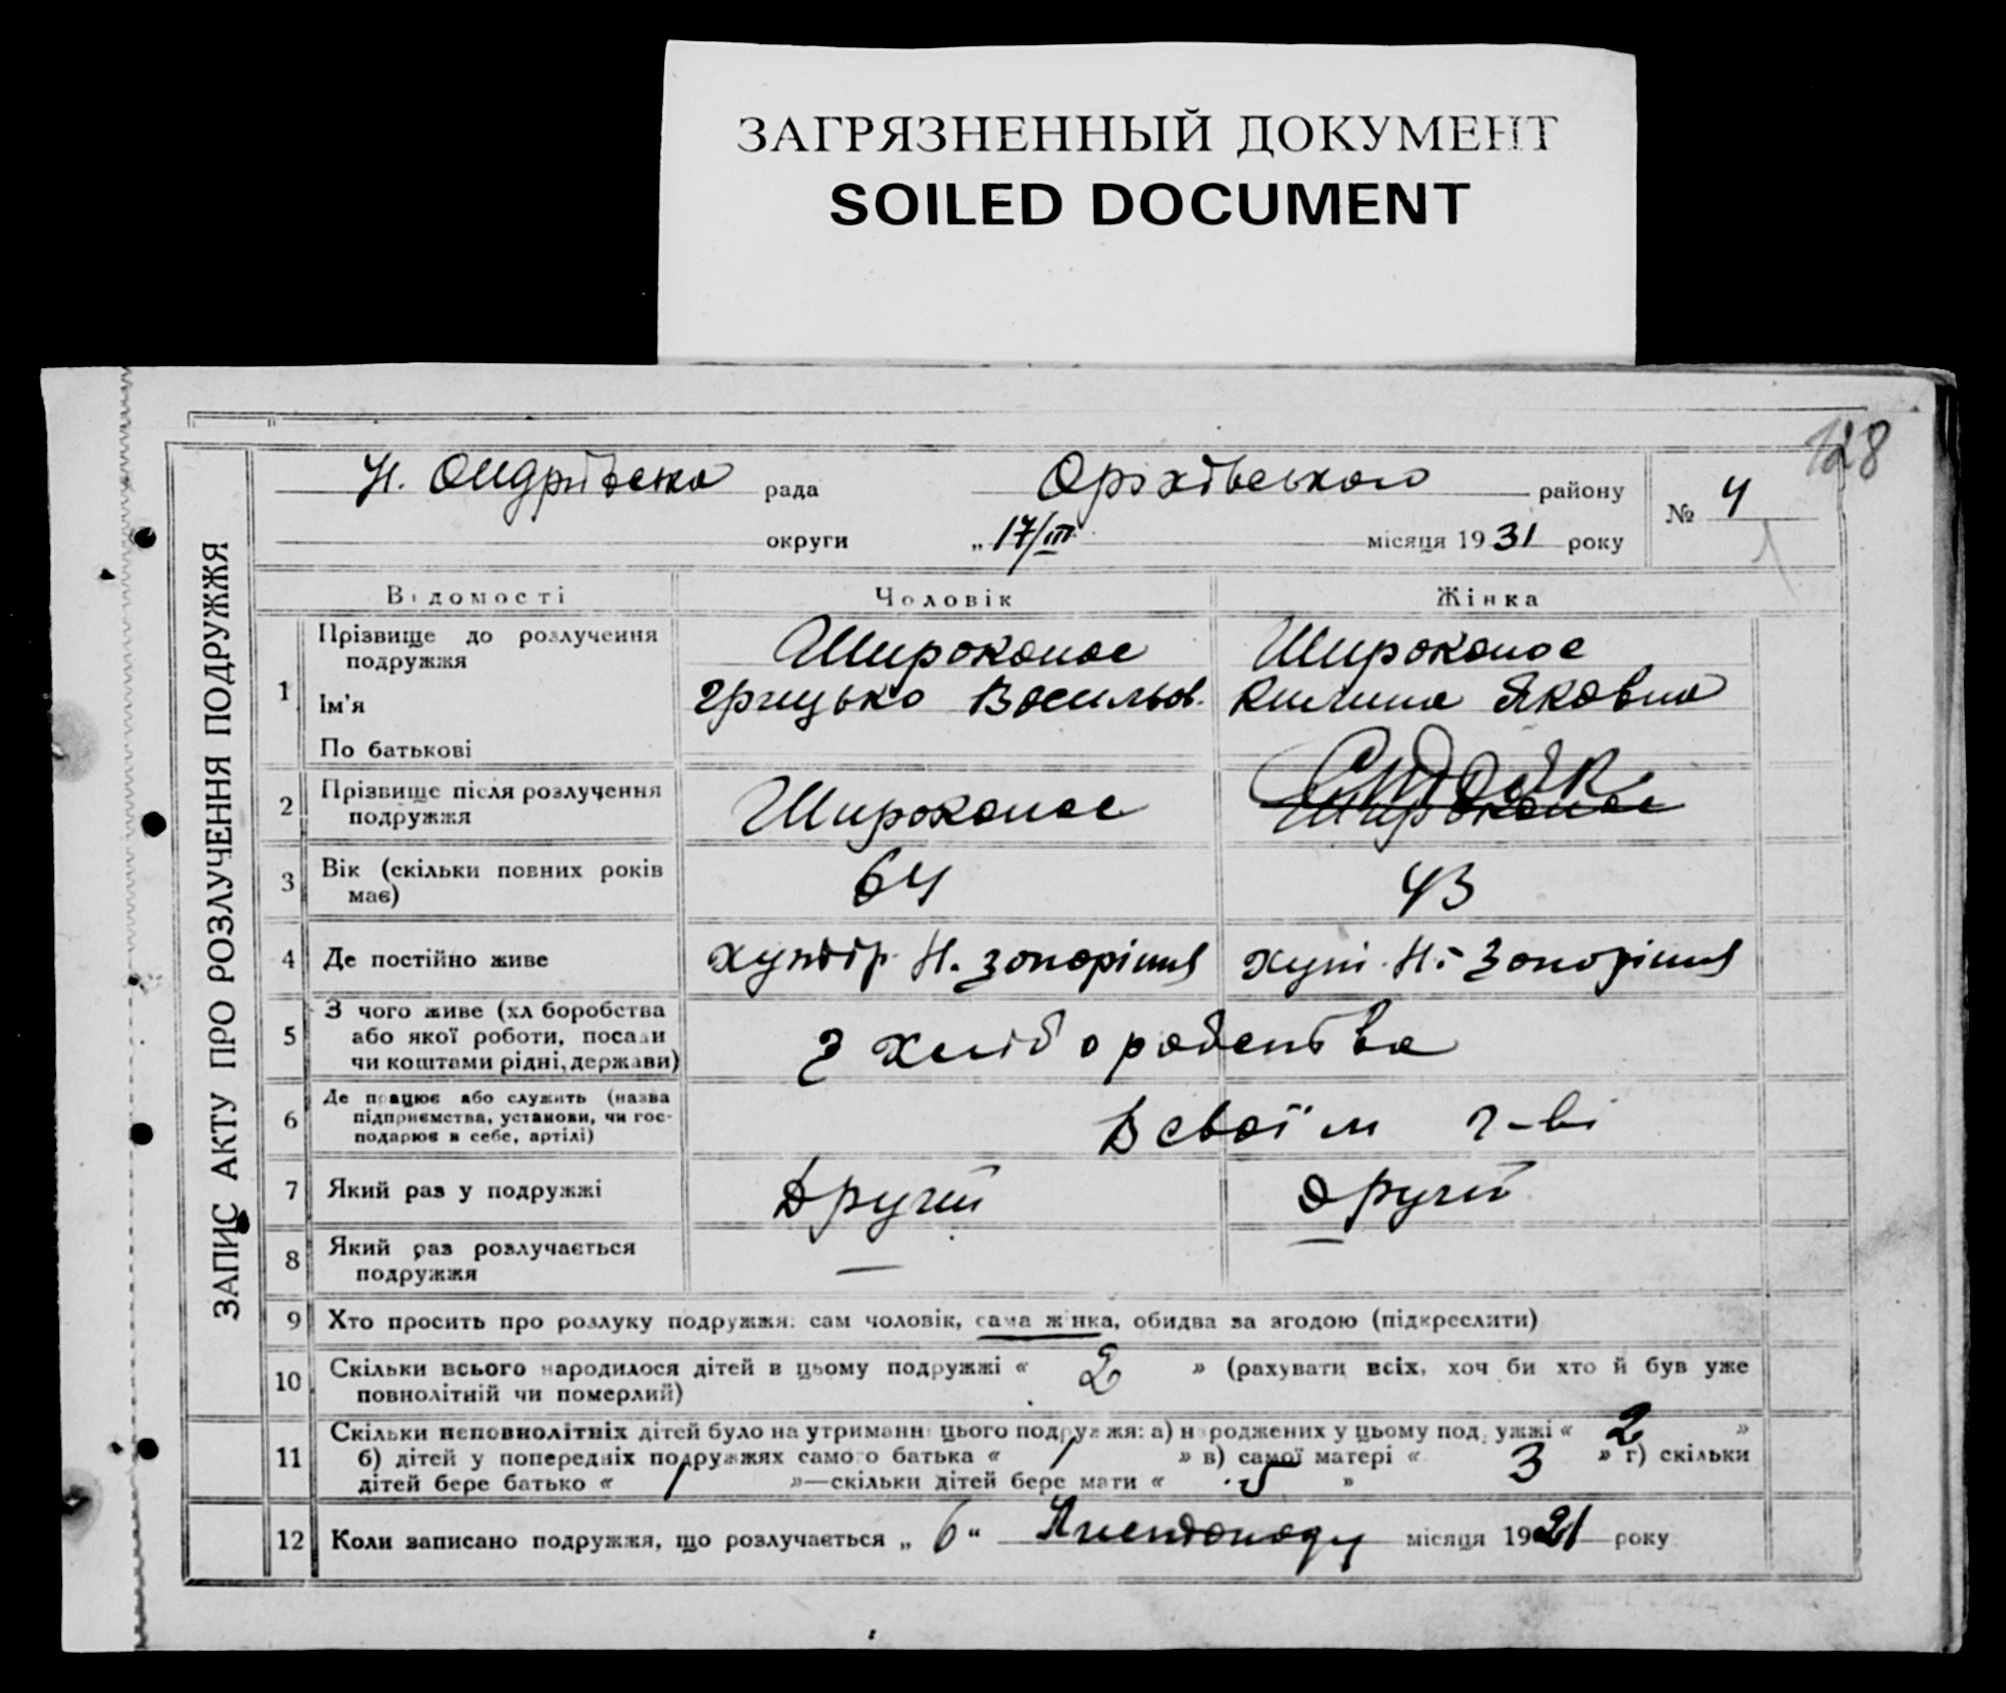 ЗАГРЯЗНЕННЫЙ ДОКУМЕНТ
SOILED DOCUMENT
128
ЗАПИС АКТУ ПРО РОЗЛУЧЕННЯ ПОДРУЖЖЯ
Н. Андрівська рада Оріхівського району № 4
округи „17/III місяця 1931 року
Відомості Чоловік Жінка
1 Прізвище до розлучення подружжя Широкопас Широкопас
Ім'я Грицько Васильов. Яковна
По батькові
2 Прізвище після розлучення подружжя Широкопас Широкопас
3 Вік (скільки повних років має) 64 43
4 Де постійно живе хутір Н. Запоріжжя хуті Н. Запоріжжя
5 З чого живе (хліборобства або якої роботи, посади чи коштами рідні, держави) З хліборобства
6 Де працює або служить (назва підприємства, установи, чи господарює в себе, артілі) В своїм г-ві
7 Який раз у подружжі Другий Другий
8 Який раз розлучається подружжя — —
9 Хто просить про розлуку подружжя: сам чоловік, сама жінка, обидва за згодою (підкреслити)
10 Скільки всього народилося дітей в цьому подружжі « 2 » (рахувати всіх, хоч би хто й був уже
повнолітній чи померлий)
11 Скільки неповнолітніх дітей було на утриманні цього подружжя: а) народжених у цьому подружжі « 2 »
б) дітей у попередніх подружжях самого батька « / » в) самої матері « 3 » г) скільки
дітей бере батько « / »—скільки дітей бере мати « 5 »
12 Коли записано подружжя, що розлучається „ 6 “ Листопаду місяця 1921 року